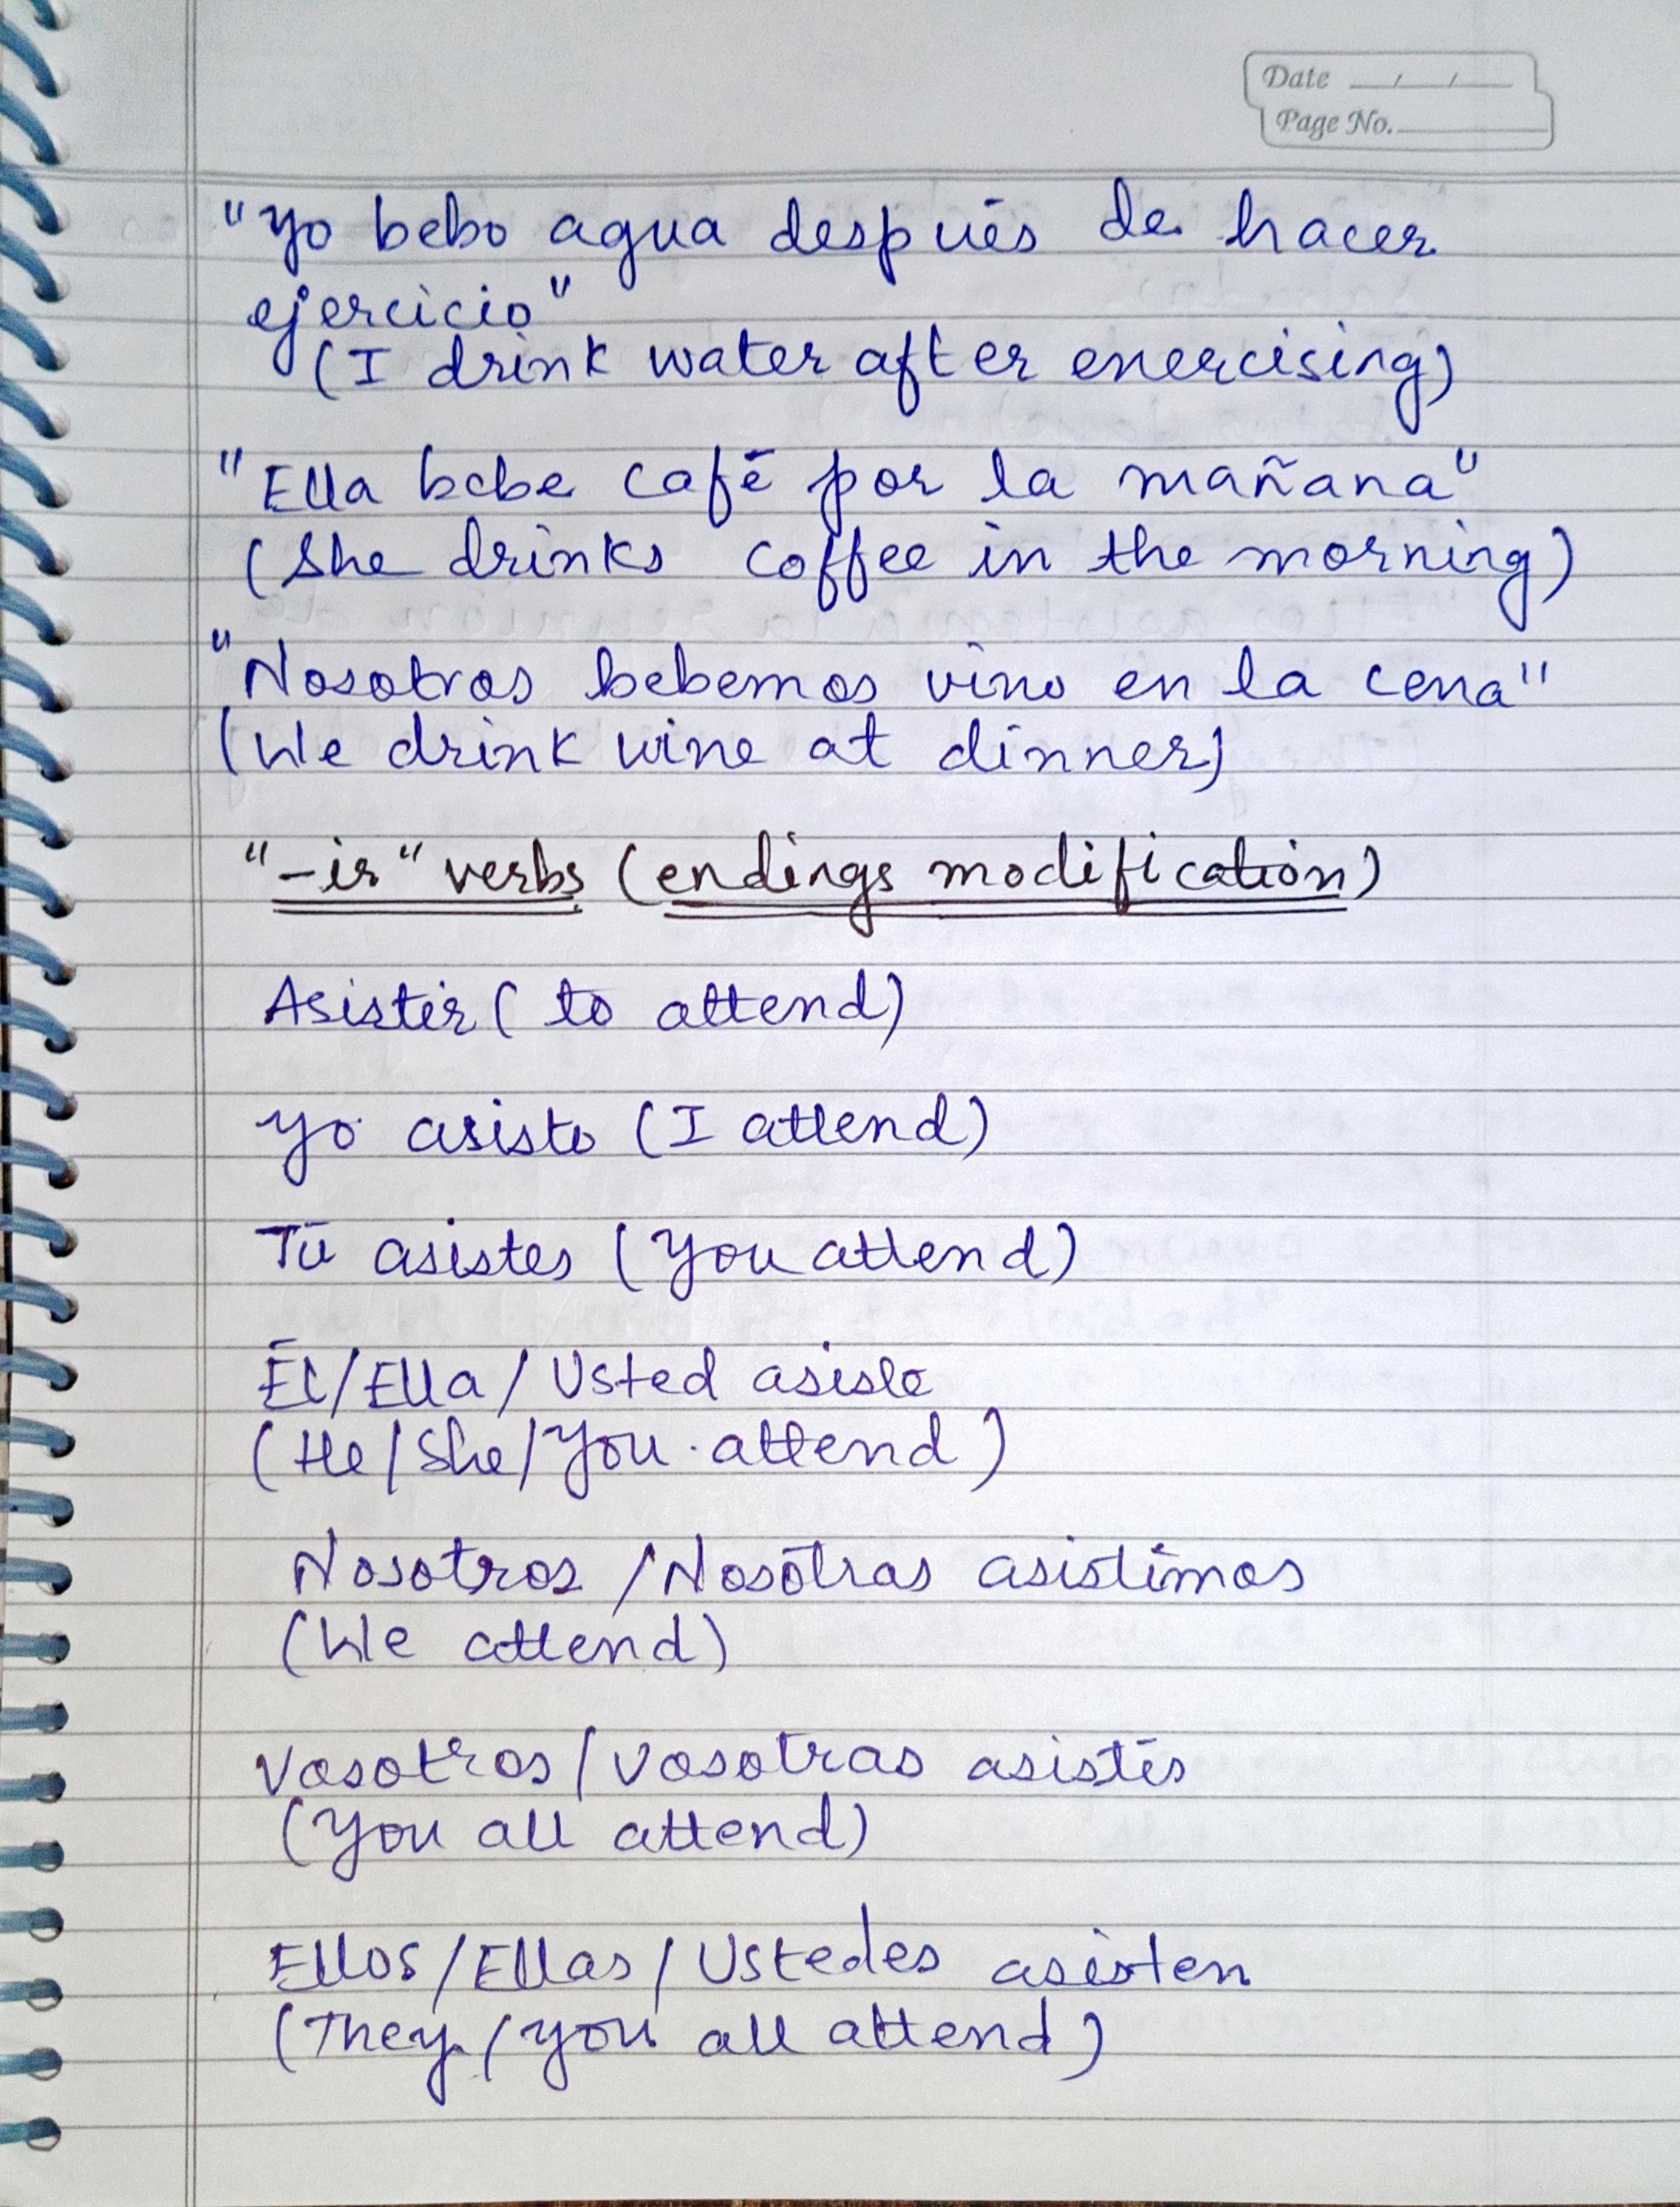 Date __/__/__
Page No.
"Yo bebo agua después de hacer
ejercicio"
(I drink water after enercising)
"Ella bebe café por la mañana"
(She drinks coffee in the morning)
"Nosotros bebemos vino en la cena"
(We drink wine at dinner)
"-ir" verbs (endings modification)
Asistir (to attend)
Yo asisto (I attend)
Tú asistes (You attend)
Él/Ella/Usted asiste
(He/She/You attend)
Nosotros/Nosotras asistimos
(We attend)
Vosotros/Vosotras asistís
(You all attend)
Ellos/Ellas/Ustedes asisten
(They/you all attend)